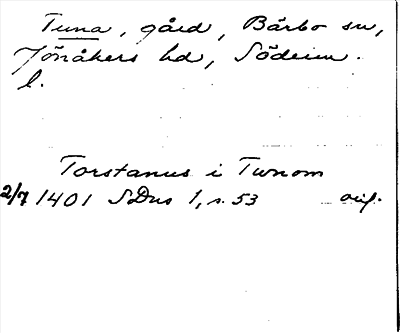 Tuna, gård, Bärbo sn,
Jönåkers hd, Söderm.
l.
Torstanus i Tunom
2/7 1401 SDns 1, s. 53 orig.